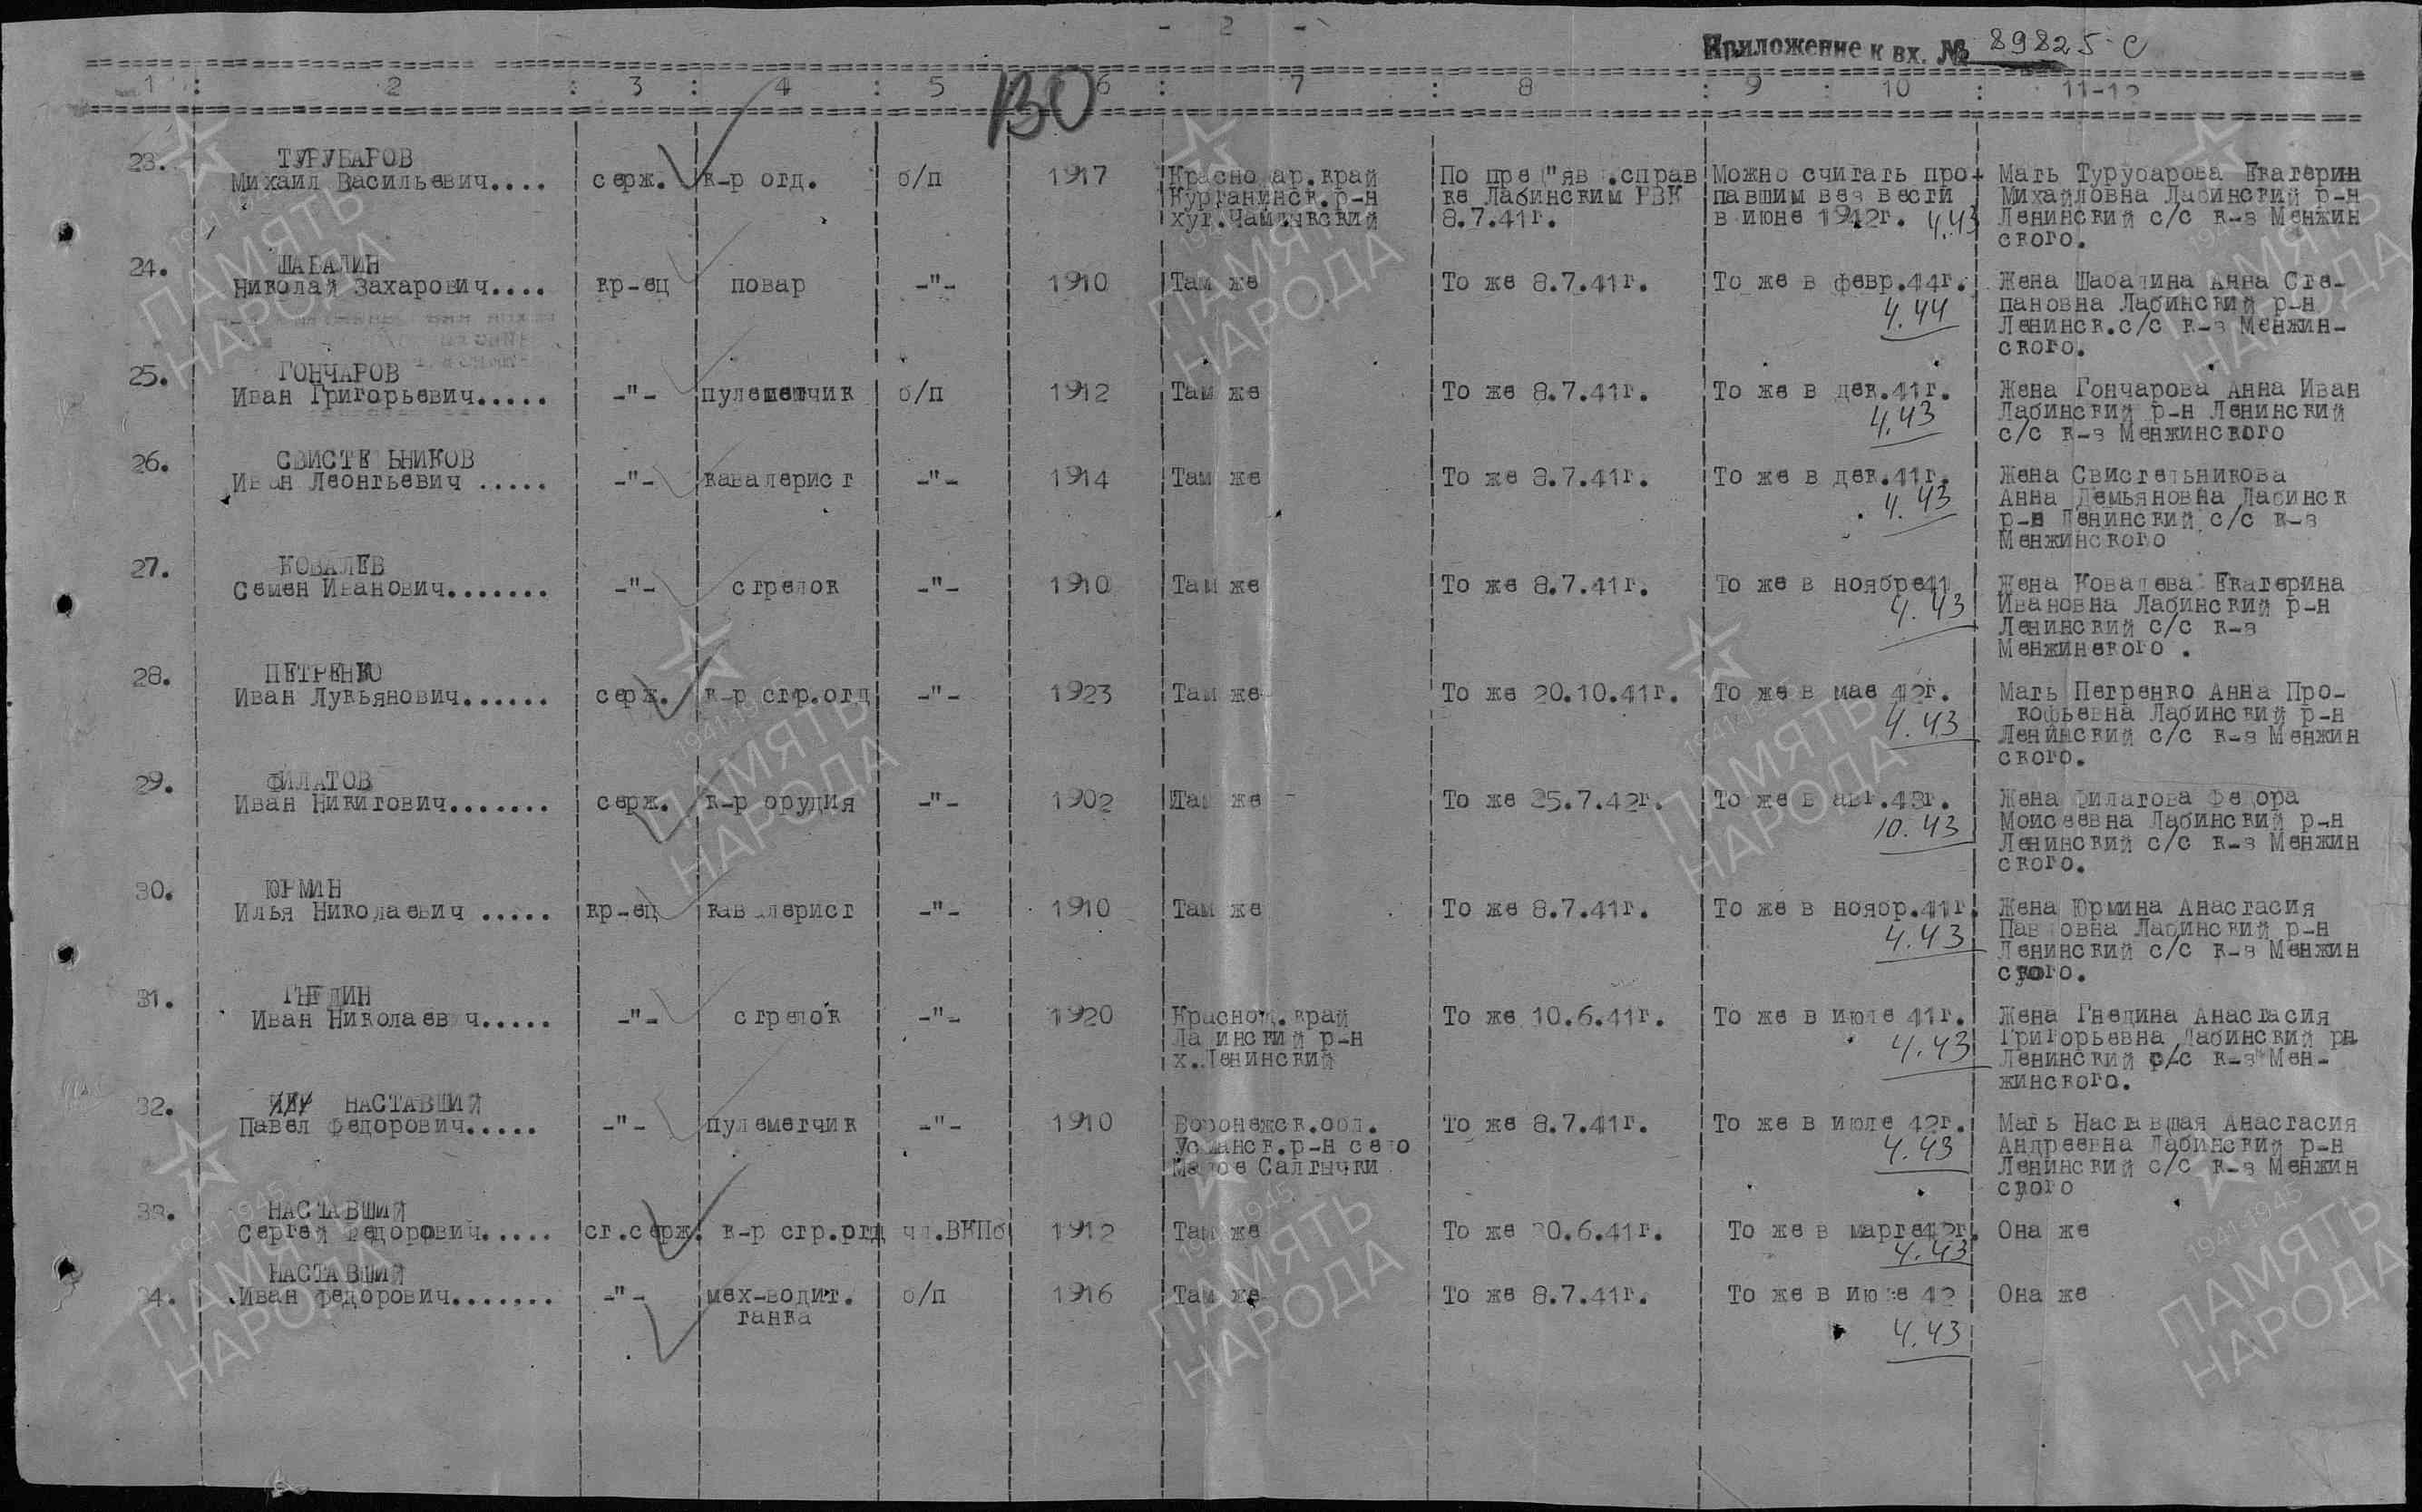 - 2 -
Приложение к вх. № 89825 с
1 : 2 : 3 : 4 : 5 : 6 : 7 : 8 : 9 : 10 : 11-12
130
23. ТУРУБАРОВ
Михаил Васильевич.... серж. к-р отд. б/п 1917 Краснодар.край По пред"яв .справ Можно считать про- Мать Турубарова Екатерин
Курганинск.р-н ке Лабинским РВК павшим без вести Михайловна Лабинский р-н
хут.Чамлыкский 8.7.41г. в июне 1942г. 4.43 Ленинский с/с к-з Менжин
ского.
24. ШАБАЛИН
Николай Захарович.... кр-ец повар -"- 1910 Там же То же 8.7.41г. То же в февр.44г. Жена Шабалина Анна Сте-
4.44 пановна Лабинский р-н
Ленинск.с/с к-з Менжин-
ского.
25. ГОНЧАРОВ
Иван Григорьевич..... -"- пулеметчик б/п 1912 Там же То же 8.7.41г. То же в дек.41г. Жена Гончарова Анна Иван
4.43 Лабинский р-н Ленинский
с/с к-з Менжинского
26. СВИСТЕЛЬНИКОВ
Иван Леонтьевич ..... -"- кавалерист -"- 1914 Там же То же 8.7.41г. То же в дек.41г. Жена Свистельникова
4.43 Анна Демьяновна Лабинск
р-н Ленинский с/с к-з
Менжинского
27. КОВАЛЕВ
Семен Иванович....... -"- стрелок -"- 1910 Там же То же 8.7.41г. То же в ноябре41 Жена Ковалева Екатерина
4.43 Ивановна Лабинский р-н
Ленинский с/с к-з
Менжинского .
28. ПЕТРЕНКО
Иван Лукьянович...... серж. к-р стр.отд -"- 1923 Там же То же 20.10.41г. То же в мае 42г. Мать Петренко Анна Про-
4.43 кофьевна Лабинский р-н
Ленинский с/с к-з Менжин
ского.
29. ФИЛАТОВ
Иван Никитович....... серж. к-р орудия -"- 1902 Там же То же 25.7.42г. То же в авг.43г. Жена Филатова Федора
10.43 Моисеевна Лабинский р-н
Ленинский с/с к-з Менжин
ского.
30. ЮРМИН
Илья Николаевич ..... кр-ец кавалерист -"- 1910 Там же То же 8.7.41г. То же в ноябр.41г. Жена Юрмина Анастасия
4.43 Павловна Лабинский р-н
Ленинский с/с к-з Менжин
ского.
31. ГНЕДИН
Иван Николаевич..... -"- стрелок -"- 1920 Краснод.край То же 10.6.41г. То же в июле 41г. Жена Гнедина Анастасия
Лабинский р-н 4.43 Григорьевна Лабинский рн
х.Ленинский Ленинский с/с к-з Мен-
жинского.
32. НАСТАВШИЙ
Павел Федорович..... -"- пулеметчик -"- 1910 Воронежск.обл. То же 8.7.41г. То же в июле 42г. Мать Наставшая Анастасия
Усманск.р-н село 4.43 Андреевна Лабинский р-н
Малое Салтычки Ленинский с/с к-з Менжин
ского
33. НАСТАВШИЙ
Сергей Федорович..... ст.серж. к-р стр.отд чл.ВКПб 1912 Там же То же 20.6.41г. То же в марте42г. Она же
4.43
НАСТАВШИЙ
34. Иван Федорович....... -"- мех-водит. б/п 1916 Там же То же 8.7.41г. То же в июле 42 Она же
танка 4.43
1941-1945
ПАМЯТЬ
НАРОДА